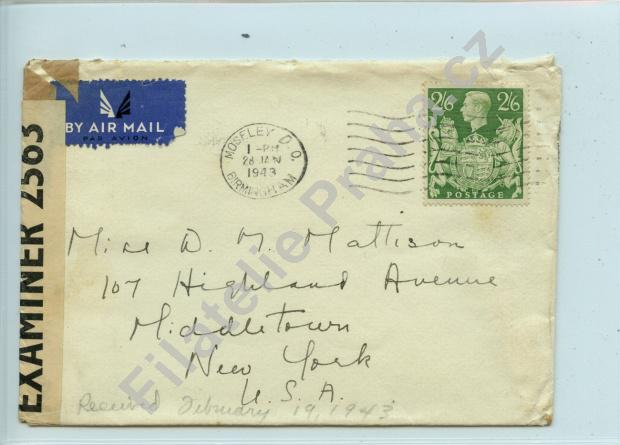 BY AIR MAIL
PAR AVION
MOSELEY D.O.
1 - PM
28 JAN
1943
BIRMINGHAM
2/6 2/6
POSTAGE
EXAMINER 2563
Miss D. M. Mattison
107 Highland Avenue
Middletown
New York
U.S.A.
Received February 19, 1943
Filatelie Praha.cz